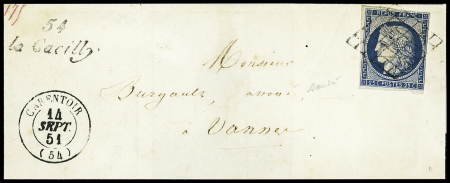 175
54
la Gacilly
REPUB. FRANC.
25 C POSTES 25 C
Monsieur
Burgault, avoué
à Vannes
CARENTOIR
14
SEPT.
51
(54)